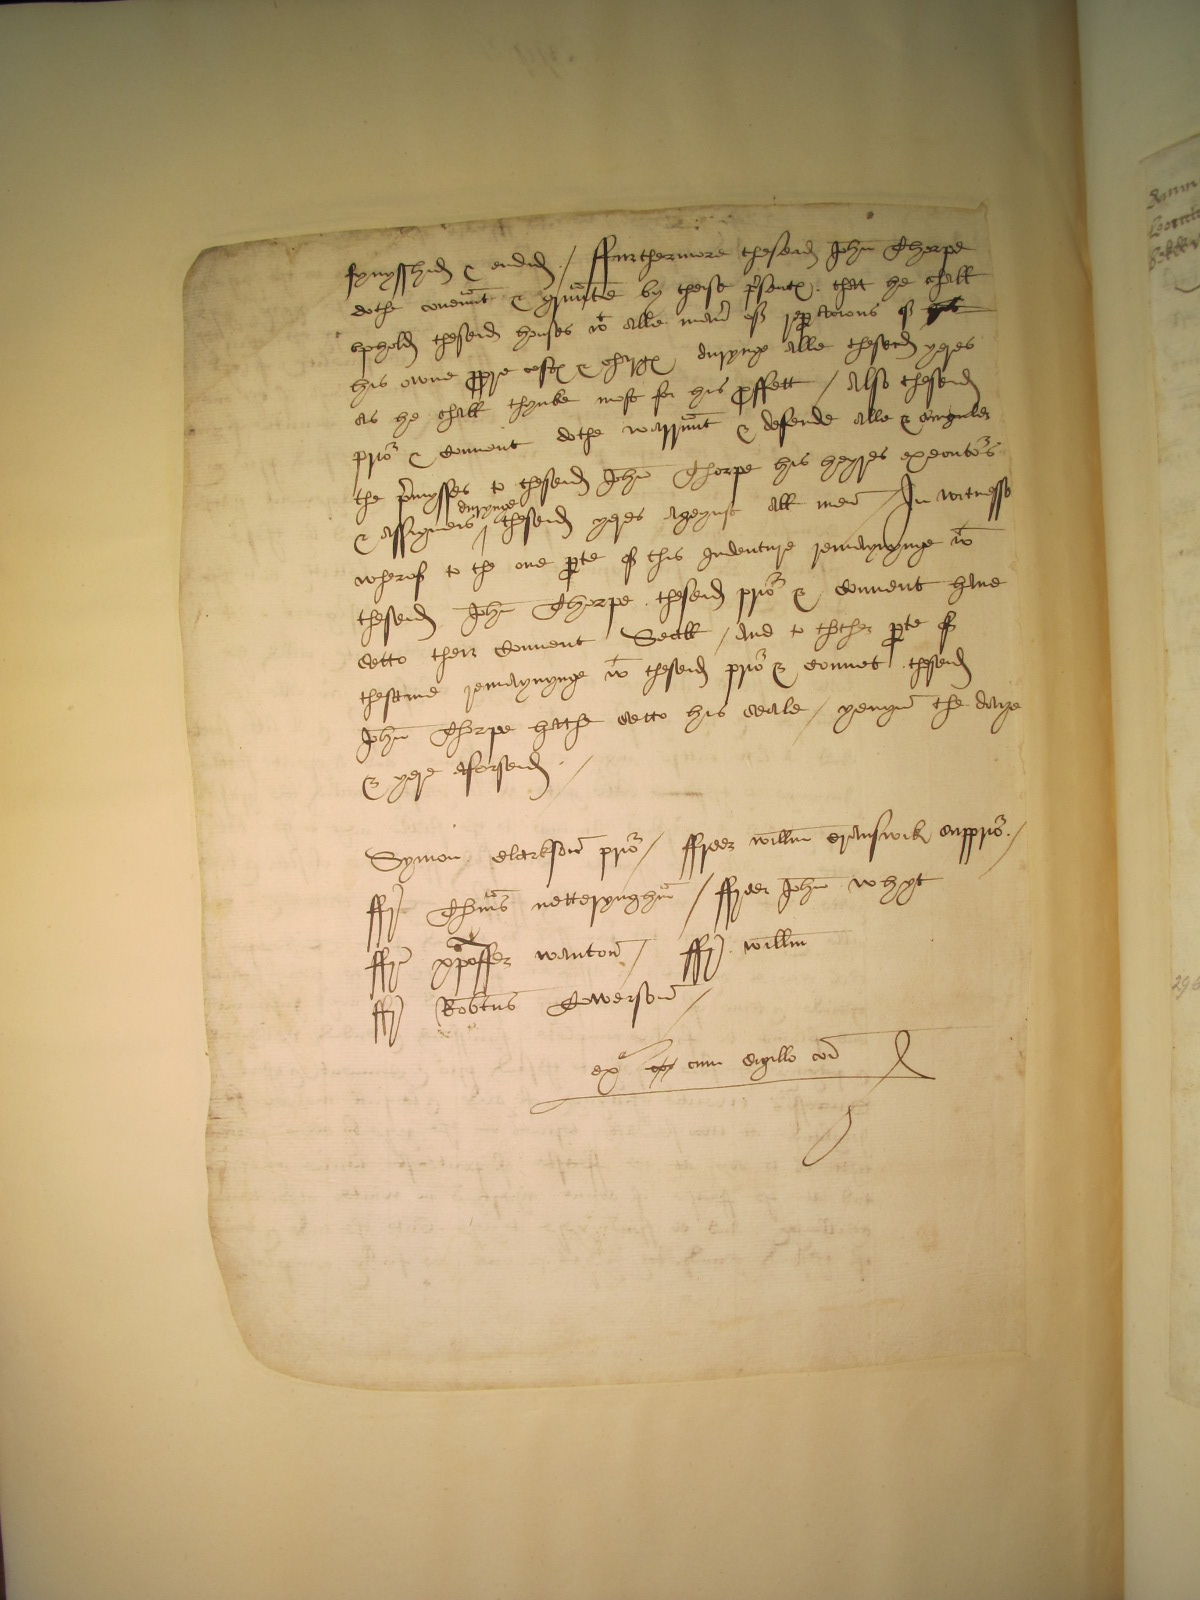 fynysshid & endid / ffurthermore theseid John Thorpe
dothe covennt & grunte by theise psentes that he shall
vphold theseid houses wt alle maner of reparacions of his
his owne propre costes & charges durynge alle theseid yeres
as he shall thynke most for his proffett / Also theseid
prior & Couent dothe warrant & defende alle & singuler
the pmysses to theseid John Thorpe his heyres executors
& assigneis durynge theseid yeres ageynst all men / In witnesse
wherof to the one parte of this Indenture remaynynge wt
theseid John Thorpe theseid prior & Conuent haue
setto their Conuent Seall / And to thother parte of
thesame remaynynge wt theseid prior & Conuet theseid
John Thorpe hathe setto his seale / yeuyn the daye
& yere aforseid /
Symon Clarkson prior / ffreer willm cranswik supprior /
ffr Thomas nottyngham / ffreer John whyt
ffr xpoffer wanton / ffr willm
ffr Robtus Cowerson /
exa cum sigillo con
296